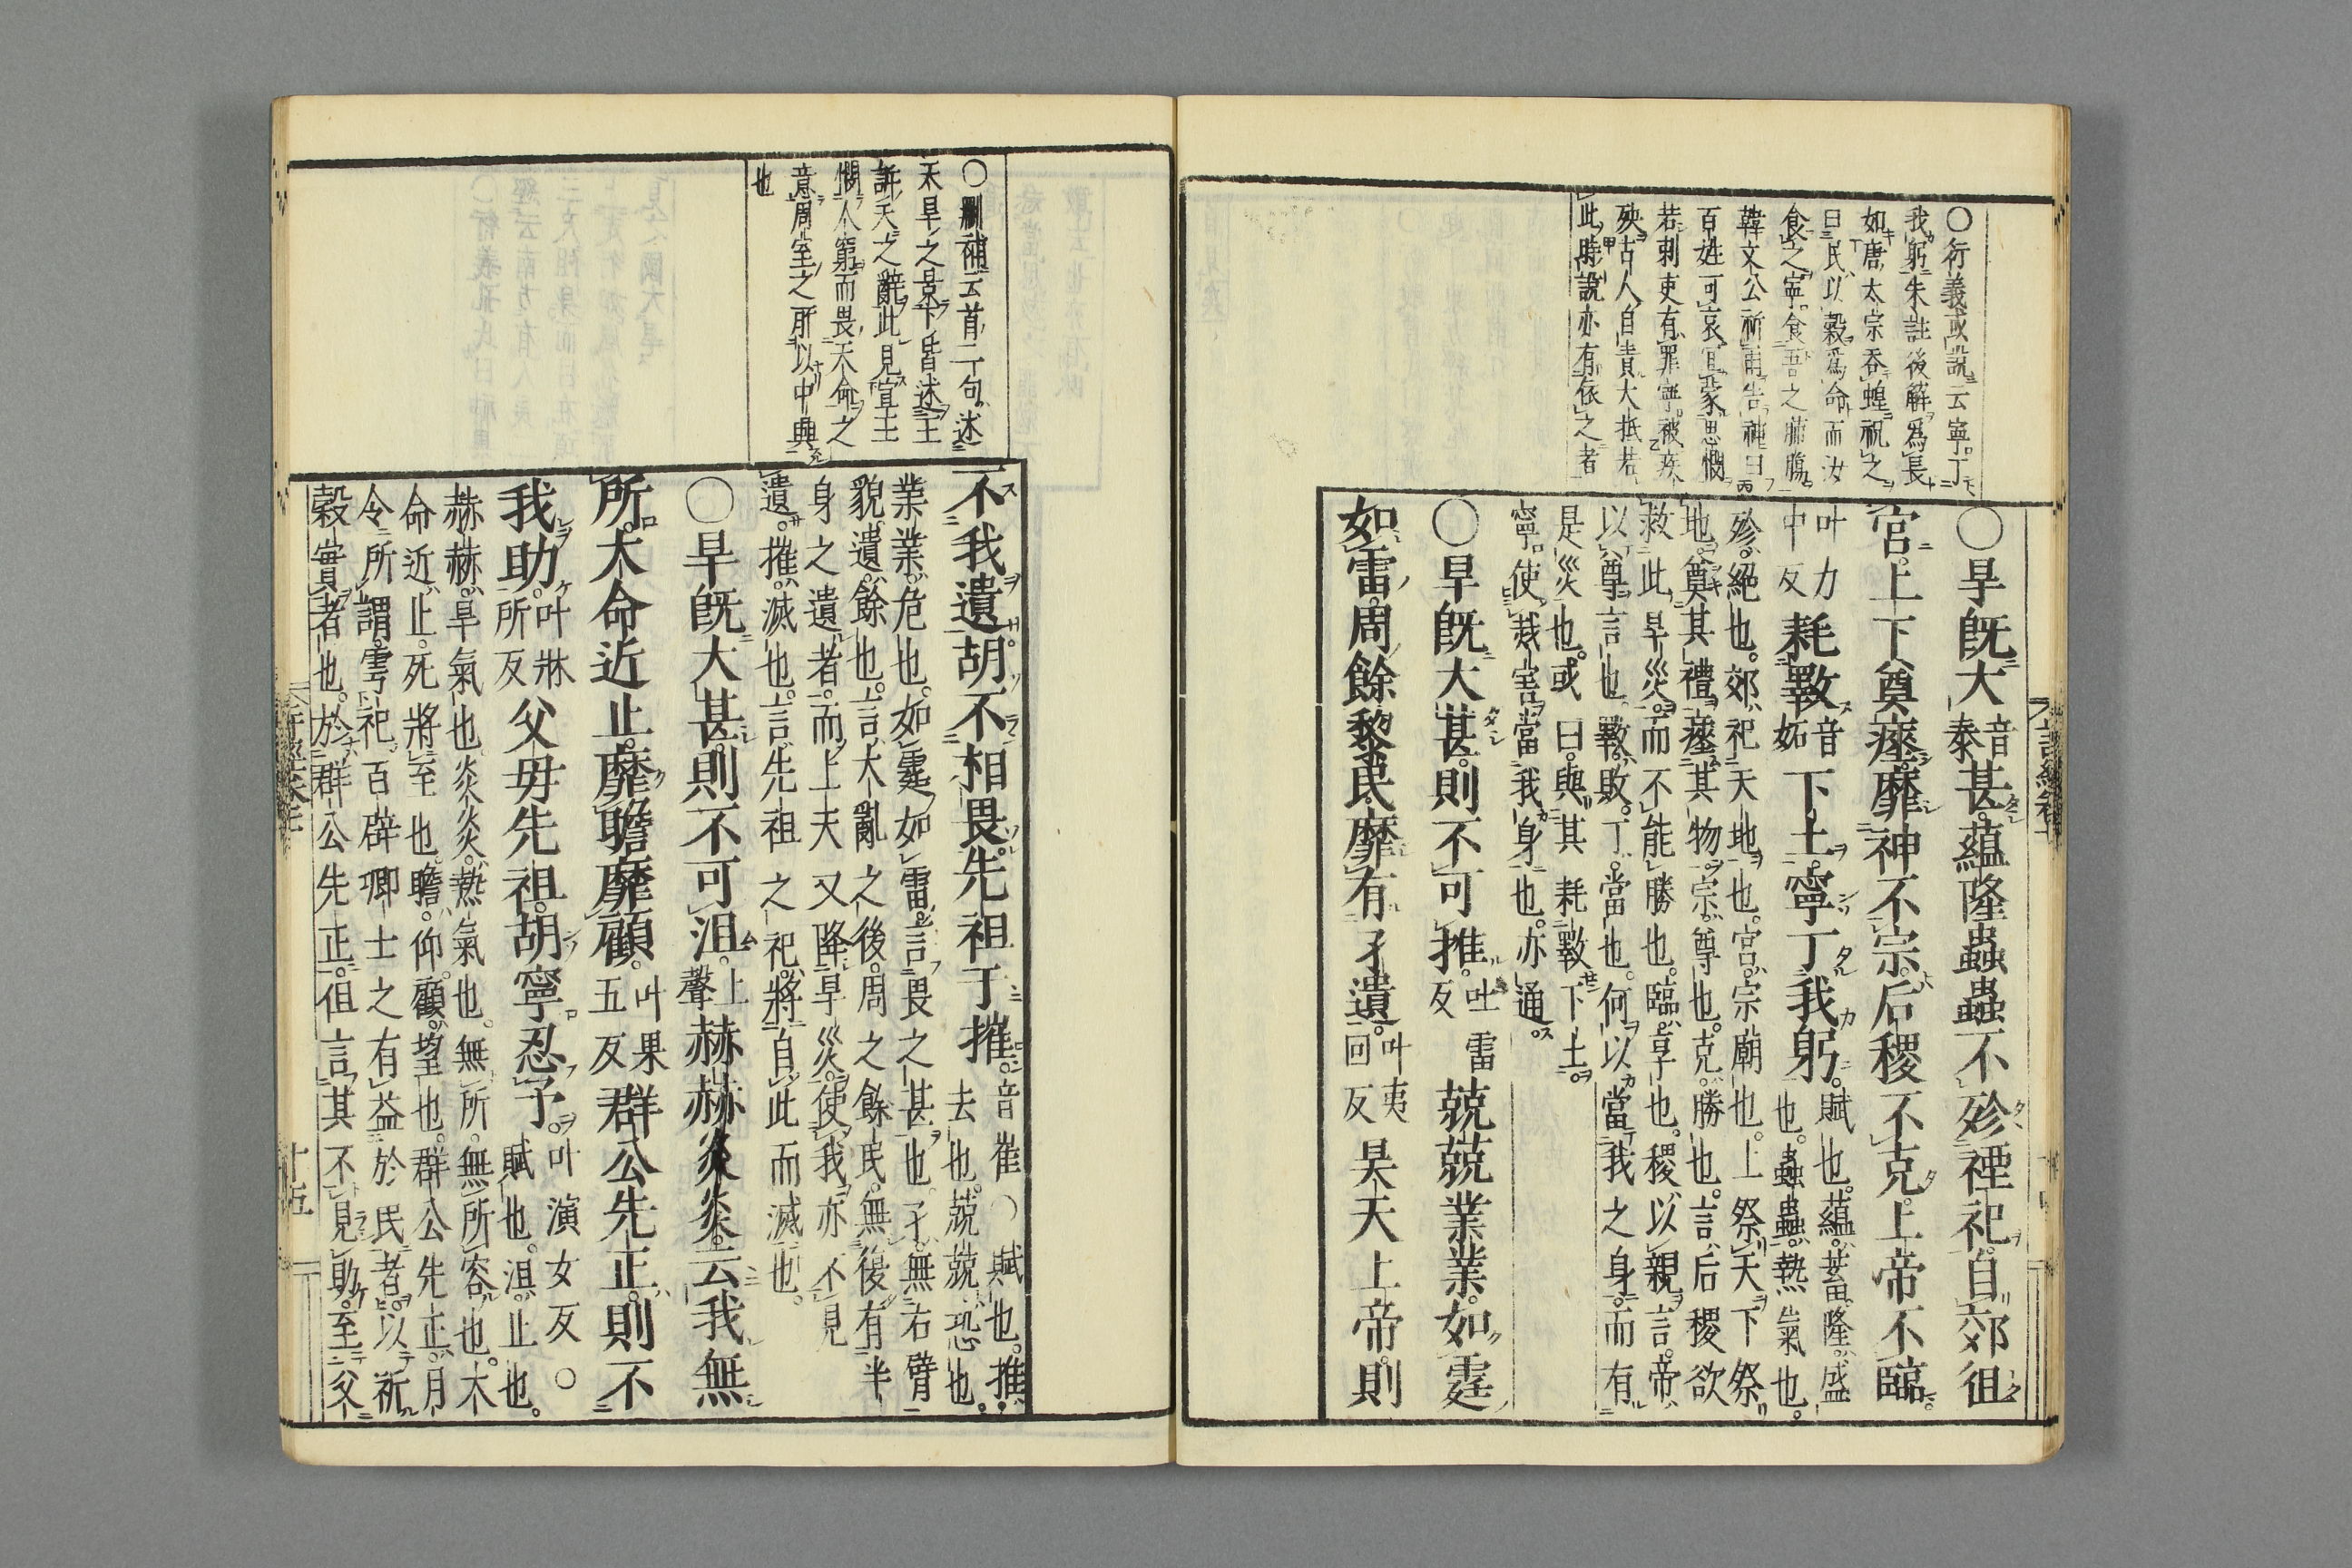 〇行義或說云寧丁
我躬朱註後解爲長
如唐太宗吞蝗祝之
曰民以穀爲命而汝
食之寧食吾之肺腸
韓文公祈雨告神曰
百姓可哀宜蒙恩憫
若刺吏有罪寧被疾
殃古人自責大抵若
此時說亦有依之者
〇旱旣大音泰甚蘊隆蟲蟲不殄禋祀自郊徂
宮上下奠瘞靡神不宗后稷不克上帝不臨
叶力中反耗斁音妬下土寧丁我躬賦也蘊蓄隆盛也蟲蟲熱氣也
殄絕也郊祀天地也宮宗廟也上祭天下祭
地奠其禮瘞其物宗尊也克勝也言后稷欲
救此旱災而不能勝也臨享也稷以親言帝
以尊言也斁敗丁當也何以當我之身而有
是災也或曰與其耗斁下土
寧使烖害當我身也亦通
〇旱旣大甚則不可推吐雷反兢兢業業如霆
如雷周餘黎民靡有孑遺叶夷回反昊天上帝則
〇刪補云首二句述
天旱之景下皆述王
訴天之辭此見宣王
憫人窮而畏天命之
意周室之所以中興
也
不我遺胡不相畏先祖于摧音崔〇賦也推去也兢兢恐也
業業危也如霆如雷言畏之甚也孑無右臂
貌遺餘也言大亂之後周之餘民無復有半
身之遺者而上天又降旱災使我亦不見
遺摧滅也言先祖之祀將自此而滅也
〇旱旣大甚則不可沮上聲赫赫炎炎云我無
所大命近止靡瞻靡顧叶果五反群公先正則不
我助叶牀所反父母先祖胡寧忍予叶演女反〇賦也沮止也
赫赫旱氣也炎炎熱氣也無所無所容也大
命近止死將至也瞻仰顧望也群公先正月
令所謂雩祀百辟卿士之有益於民者以祈
穀實者也於群公先正但言其不見助至父
十五